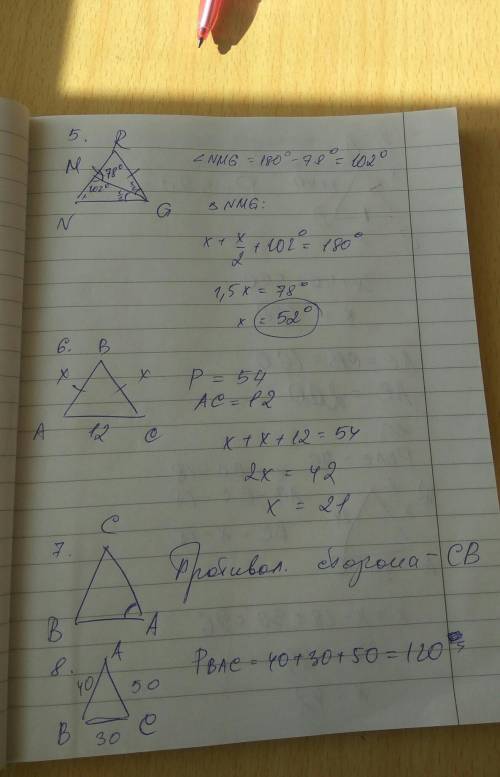 5.
R
M
78°
102°
x/2
x/2
N
G
∠NMG = 180° - 78° = 102°
△ NMG:
x + x/2 + 102° = 180°
1,5x = 78°
x = 52°
6.
B
x
x
A
12
C
P = 54
AC = 12
x + x + 12 = 54
2x = 42
x = 21
7.
C
B
A
Противол. сторона - CB
8.
A
40
50
B
30
C
P BAC = 40 + 30 + 50 = 120